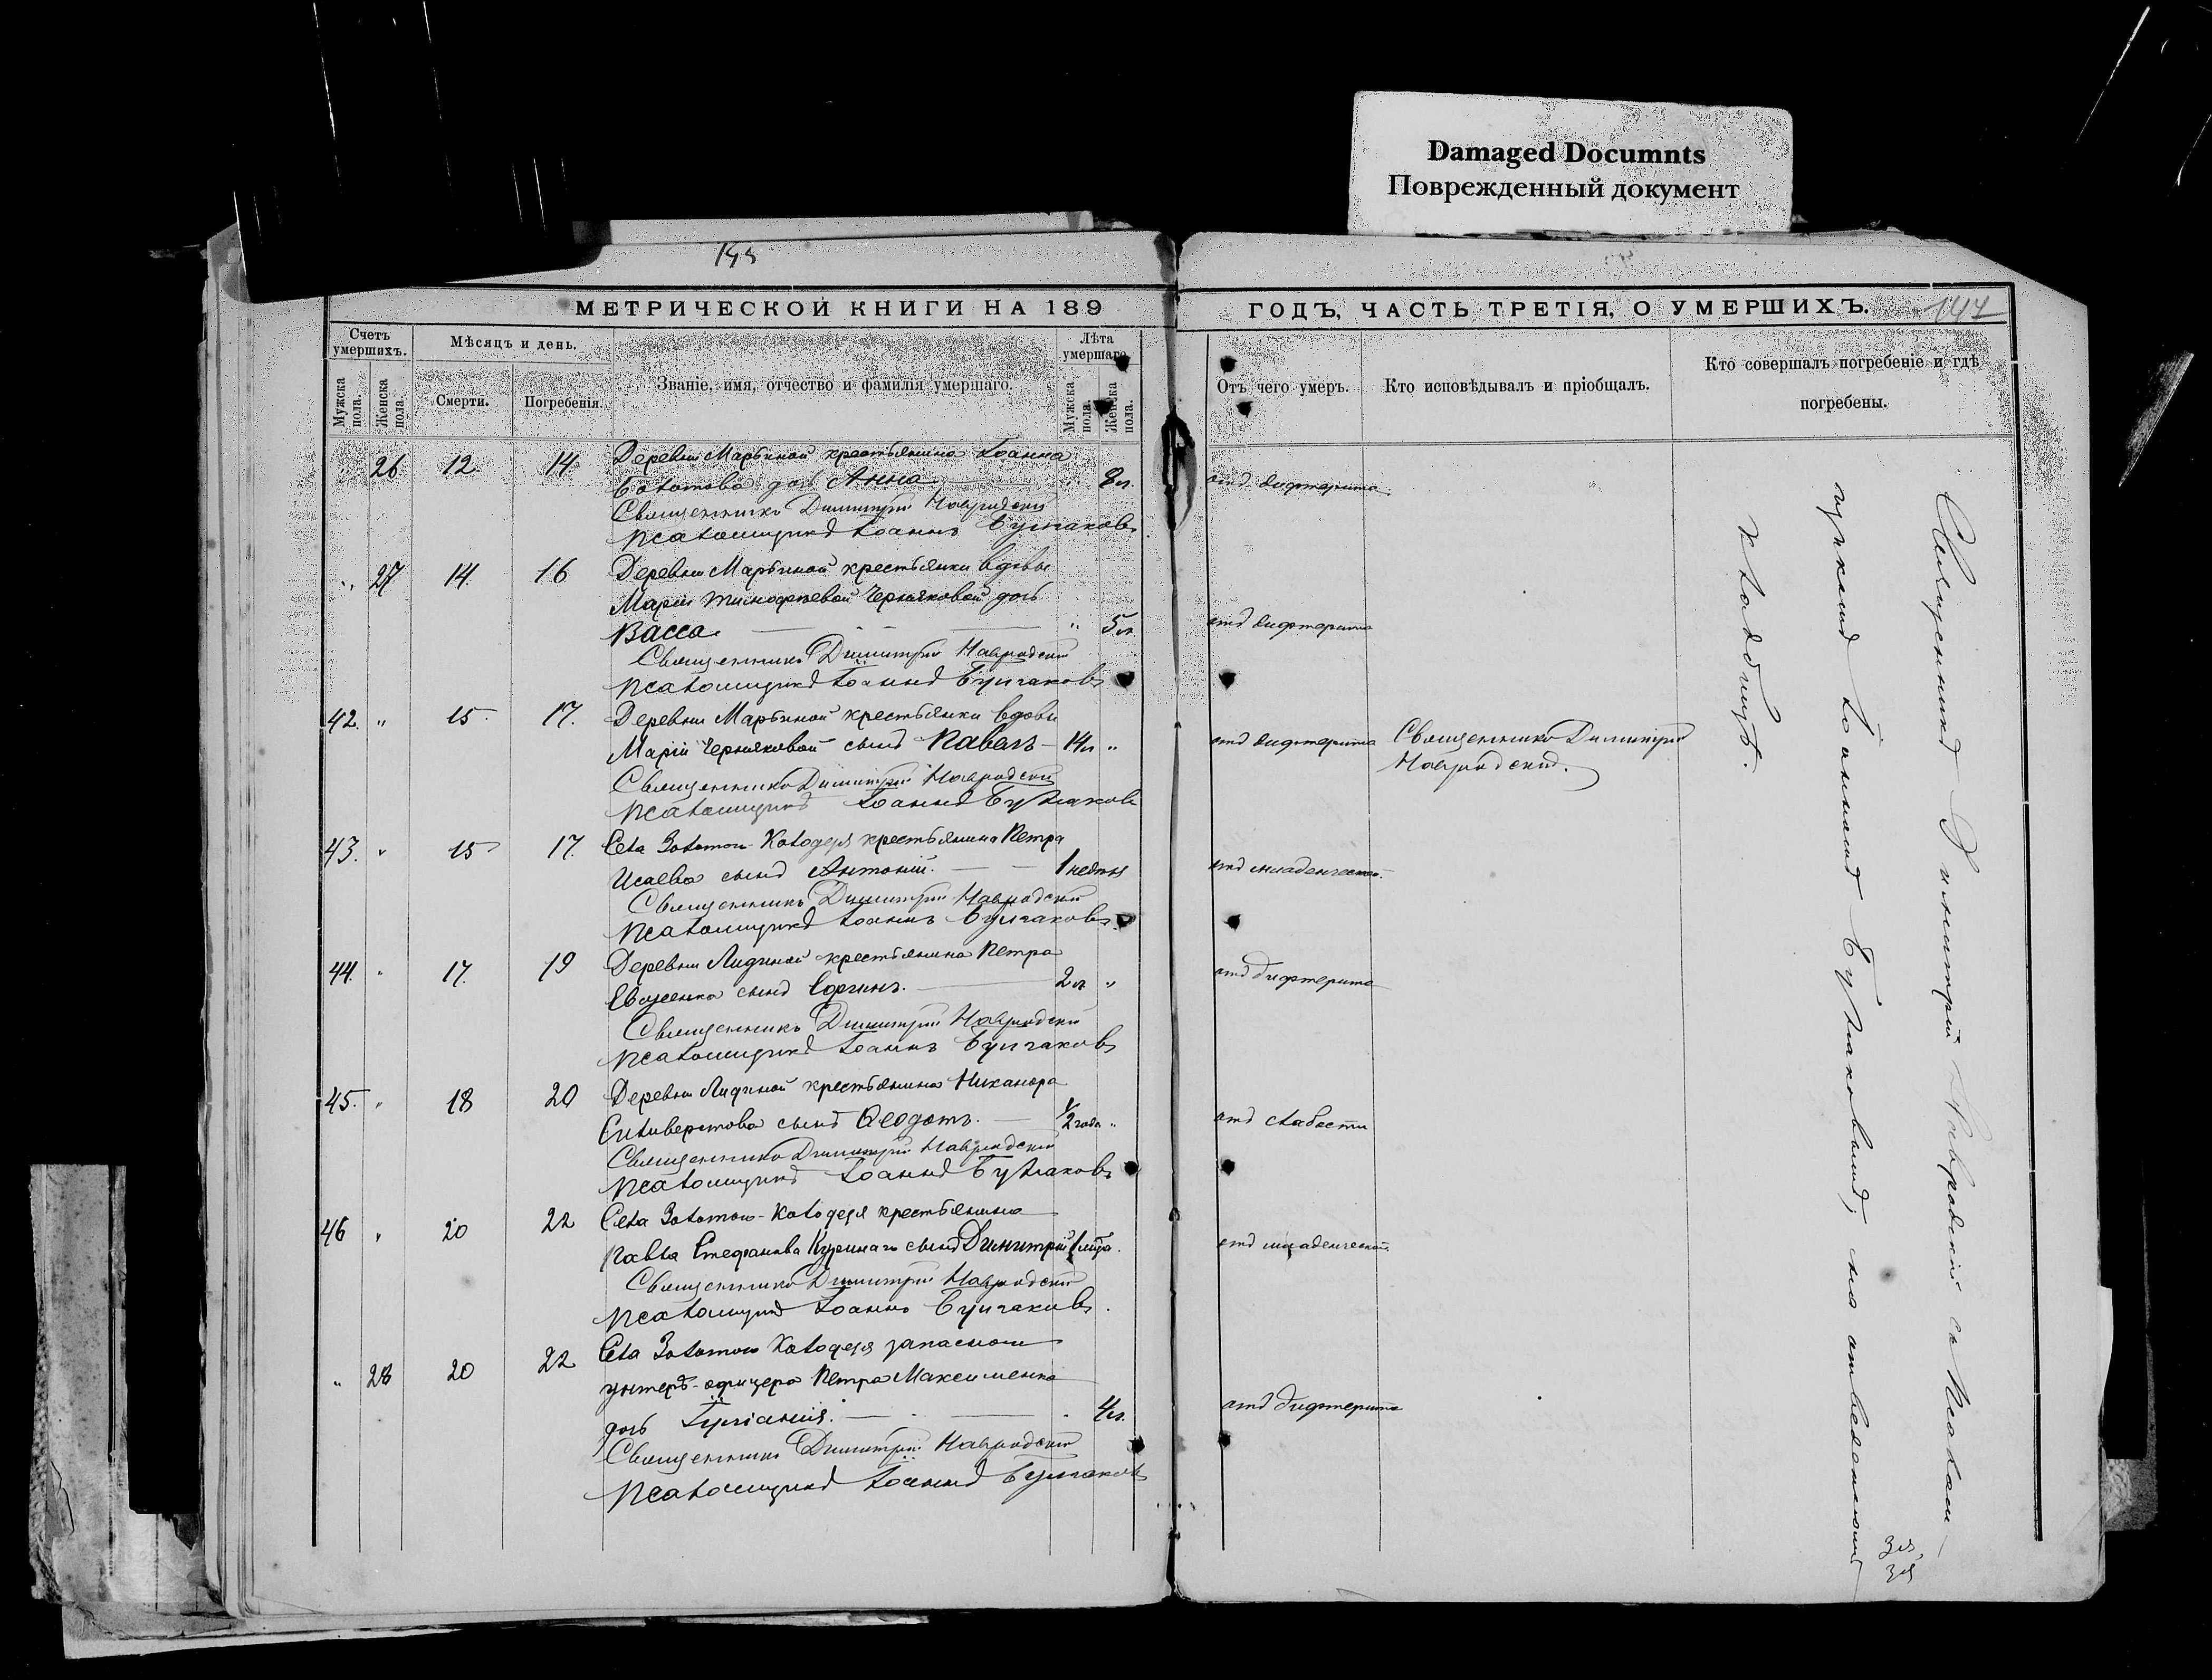 Damaged Documnts
Поврежденный документ
147
МЕТРИЧЕСКОЙ КНИГИ НА 189
ГОДЪ, ЧАСТЬ ТРЕТІЯ, О УМЕРШИХЪ.
Счетъ умершихъ.
Мѣсяцъ и день.
Званіе, имя, отчество и фамилія умершаго.
Лѣта умершаго.
Мужска пола.
Женска пола.
Смерти.
Погребенія.
Мужска пола.
Женска пола.
Отъ чего умеръ.
Кто исповѣдывалъ и пріобщалъ.
Кто совершалъ погребеніе и гдѣ
погребены.
" 26 12 14 Деревни Марьиной крестьянина Іоанна
дочь Анна " 8 л. отъ дифтерита
Священникъ Димитрій Навродскій
Псаломщикъ Іоаннъ Булгаковъ
" 27 14 16 Деревни Марьиной крестьянки вдовы
Маріи Тимофѣевой Черняковой дочь
Васса " 5 л. отъ дифтерита
Священникъ Димитрій Навродскій
Псаломщикъ Іоаннъ Булгаковъ
42. " 15 17. Деревни Марьиной крестьянки вдовы
Маріи Черняковой сынъ Павелъ 14 л. " отъ дифтерита Священникъ Димитрій
Навродскій.
Священникъ Димитрій Навродскій
Псаломщикъ Іоаннъ Булгаковъ
43. " 15 17. Села Золотого-Колодезя крестьянина Петра
Исаева сынъ Антоній. 1 недѣля отъ младенческой.
Священникъ Димитрій Навродскій
Псаломщикъ Іоаннъ Булгаковъ
44. " 17. 19 Деревни Лидиной крестьянина Петра
сынъ 2 л. " отъ дифтерита
Священникъ Димитрій Навродскій
Псаломщикъ Іоаннъ Булгаковъ
45. " 18 20 Деревни Лидиной крестьянина Никанора
Силиверстова сынъ Ѳеодотъ. 1/2 года " отъ слабости
Священникъ Димитрій Навродскій
Псаломщикъ Іоаннъ Булгаковъ
46 " 20 22 Села Золотого-Колодезя крестьянина
Павла Стефанова сынъ Димитрій 1 отъ младенческой.
Священникъ Димитрій Навродскій
Псаломщикъ Іоаннъ Булгаковъ.
" 28 20 22 Села Золотого Колодезя запасного
унтеръ-офицера Петра Максименко
дочь Іуліанія. 4 л. отъ дифтерита
Священникъ Димитрій Навродскій
Псаломщикъ Іоаннъ Булгаковъ
Священникъ Димитрій Навродскій съ Псалом-
щикомъ Іоанномъ Булгаковымъ, на отведенномъ
кладбищѣ.